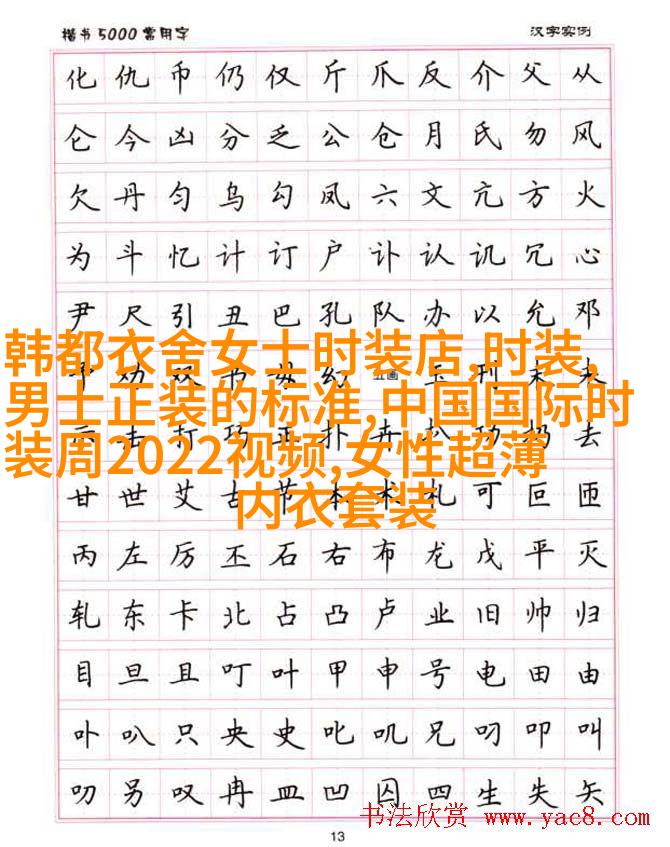 楷书5000常用字 汉字实例
化仇币仍仅斤爪反介父从
仑今凶分乏公仓月氏勿风
欠丹匀乌勾凤六文亢方火
为斗忆计订户讣认讥冗心
尹尺引丑巴孔队办以允邓
韩都衣舍女士时装店,时装,
男士正装的标准,中国国际时
装周2022视频,女性超薄
内衣套装
甘世艾古节本术札可叵匝
丙左厉丕石右布龙戊平灭
轧东卡北占凸卢业旧帅归
目旦且叮叶甲申号电田由
卟叭只央史叱叽兄叼叩叫
叻另叹冉皿凹囚四生失矢
书法欣赏 www.yac8.com
13